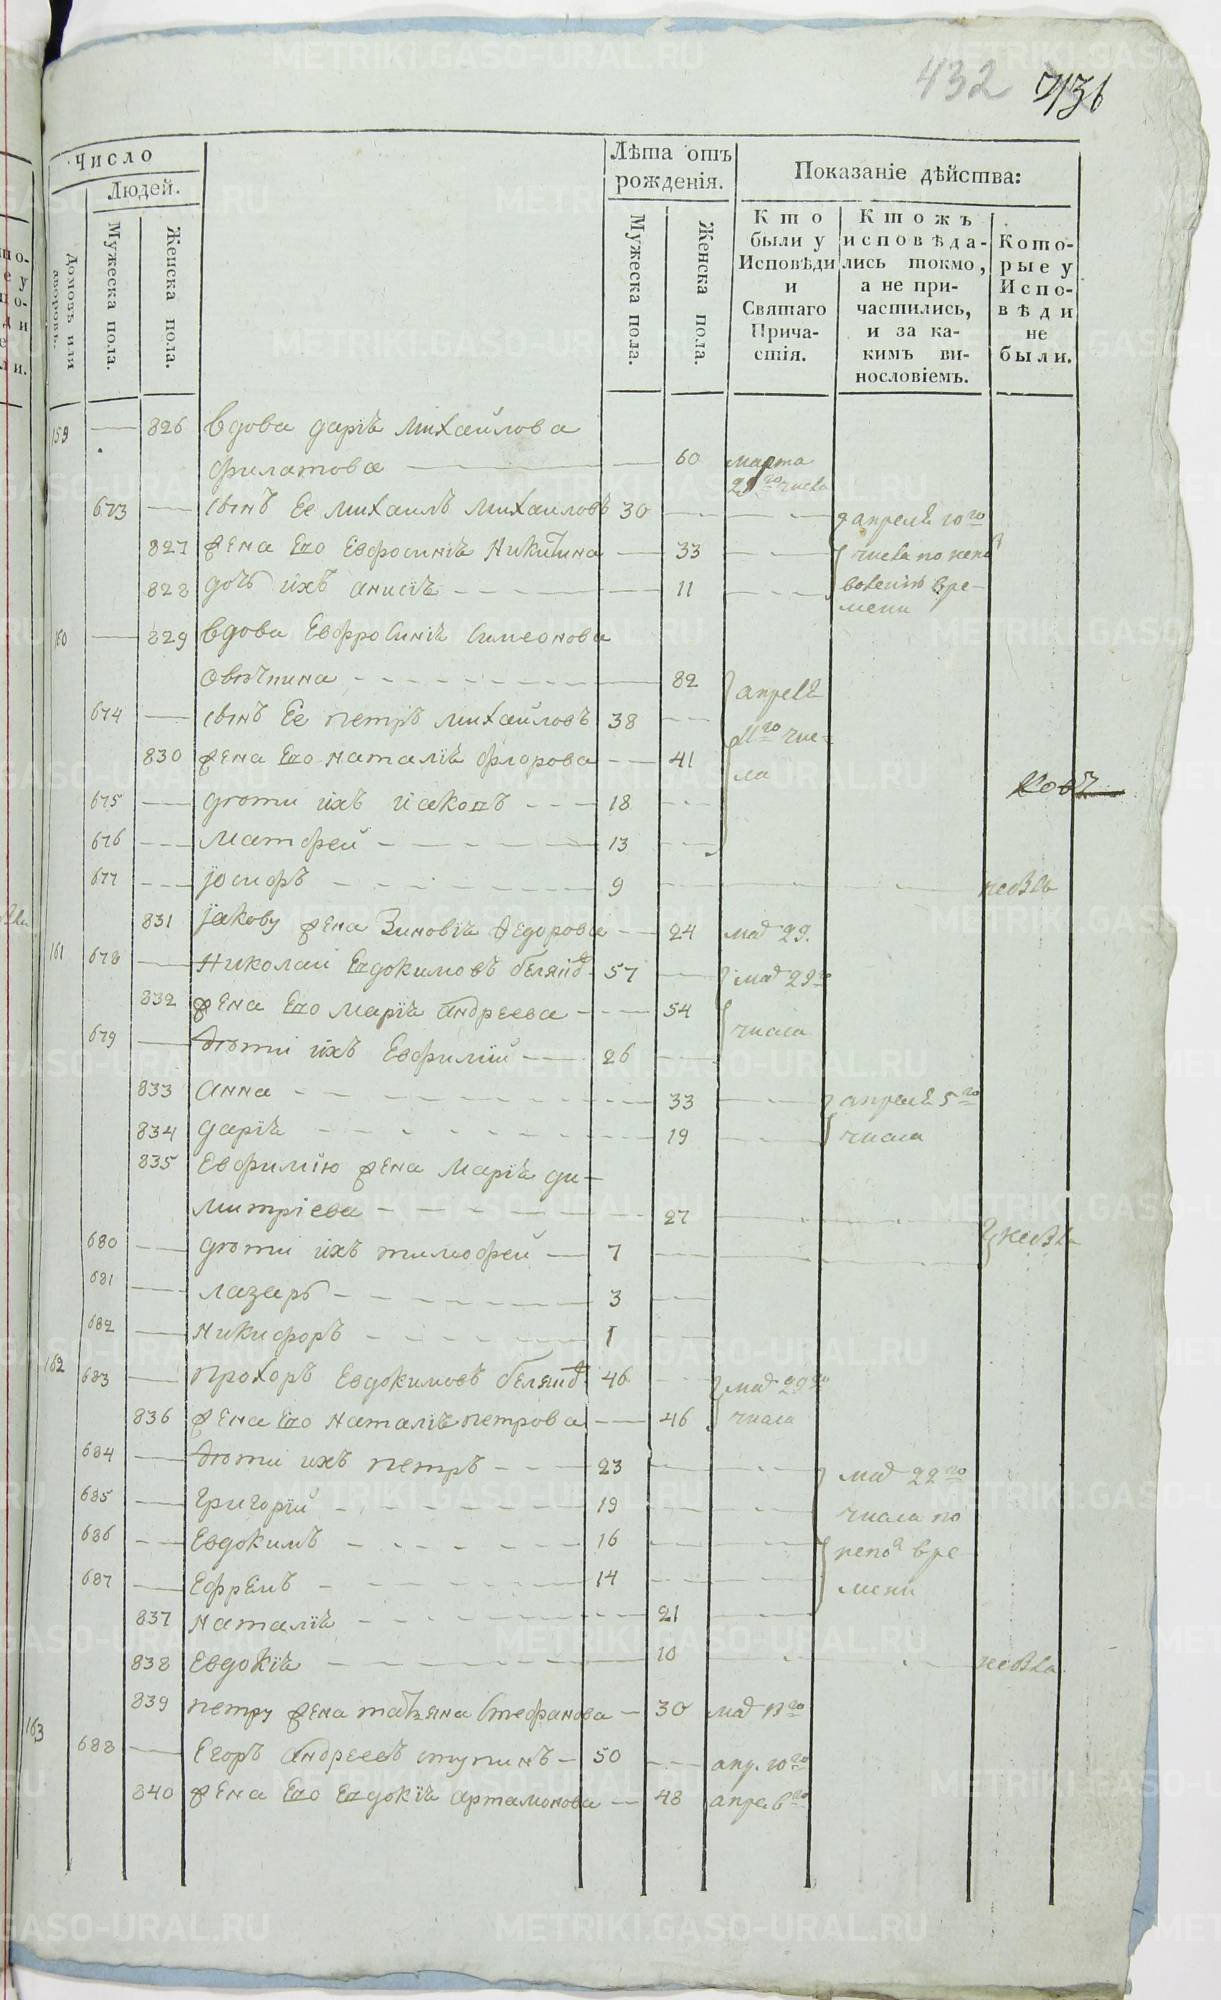 432 436
Число
Людей.
Домовъ или дворовъ.
Мужеска пола.
Женска пола.
Лѣта отъ
рожденія.
Мужеска пола.
Женска пола.
Показаніе дѣйства:
Кто
были у
Исповѣди
и
Святаго
Прича-
стія.
Ктожъ
исповѣда-
лись токмо,
а не при-
частились,
и за ка-
кимъ ви-
нословіемъ.
Кото-
рые у
Испо-
вѣди
не
были.
159 — 826 вдова дарія михайлова
филатова — 60 марта
29го числа
673 — сынъ Ее михаилъ михаиловъ 30 апреля 10го
827 жена Его Евфросинія Никитина — 33 числа по непо
828 дочь ихъ анисія — 11 воленію вре-
мени
160 — 829 вдова Евфросинія Симеонова
овѣчкина — 82 апреля
674 — сынъ Ее петръ михайловъ 38 11го чис-
830 жена Его наталія флорова — 41 ла
675 — дѣти ихъ іаковъ — 18
676 — матфей — 13
677 — іосифъ — 9
831 іакову жена Зиновія Федорова — 24 мар 29.
161 678 — Николай Евдокимовъ 57 мар 29го
832 жена Его марія андреева — 54 числа
679 — дѣти ихъ Евфимій — 26
833 анна — 33 апреля 5го
834 дарія — 19 числа
835 Евфимію жена марія ди-
митріева — 27
680 — дѣти ихъ тимофей — 7
681 — лазарь — 3
682 — никифоръ — 1
162 683 — прохоръ Евдокимовъ 46 мар 29го
836 жена Его наталія петрова — 46 числа
684 — дѣти ихъ петръ — 23 мар 22го
685 — григорій — 19 числа по
686 — Евдокимъ — 16 непо вре
687 — Ефремъ — 14 мени
837 наталія — 21
838 Евдокія — 10
839 петру жена татьяна Стефанова — 30 мар 13го
163 688 — Егоръ андреевъ ступинъ — 50 апр. 10го
840 жена Его Евдокія артамонова — 48 апре 6го